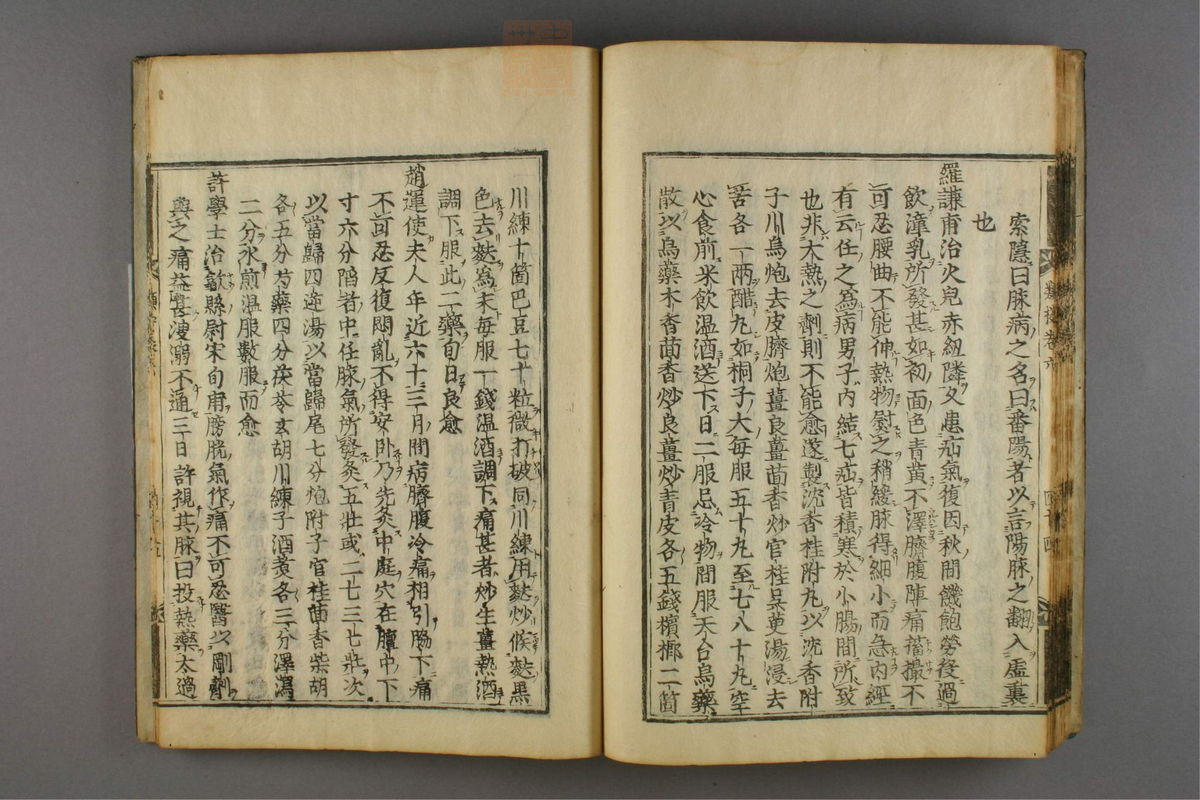 索隱曰脉病之名曰番陽者以言陽脉之翻入虛裏
也
羅謙甫治火兒赤紐隣久患疝氣復因秋間饑飽勞役過
飲潼乳所發甚如初面色青黃不澤臍腹陣痛搐撮不
可忍腰曲不能伸熱物熨之稍緩脉得細小而急内經
有云任之為病男子内結七疝皆積寒於小腸間所致
也非大熱之劑則不能愈遂製沈香桂附丸以沈香附
子川烏炮去皮臍炮薑良薑茴香炒官桂吳茰湯浸去
苦各一兩醋丸如桐子大每服五十丸至七八十丸空
心食前米飲温酒送下日二服忌冷物間服天台烏藥
散以烏藥木香茴香炒良薑炒青皮各五錢檳榔二箇
川練十箇巴豆七十粒微打破同川練用麩炒候麩黑
色去麩為末每服一錢温酒調下痛甚者炒生薑熱酒
調下服此二藥旬日良愈
趙運使夫人年近六十三月間病臍腹冷痛相引脇下痛
不可忍反復悶亂不得安卧乃先灸中庭穴在膻中下
寸六分陷者中任脉氣所發灸五壯或二七三七壯次
以當歸四逆湯以當歸尾七分炮附子官桂茴香柴胡
各五分芍藥四分茯苓玄胡川練子酒煑各三分澤瀉
二分水煎温服數服而愈
許學士治歙縣尉宋旬甫膀胱氣作痛不可忍醫以剛劑
與之痛益甚溲溺不通三日許視其脉曰投熱藥太過
類按卷六